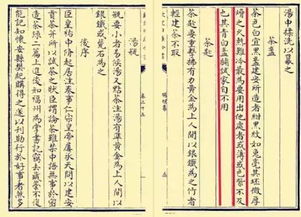 湯中揉洗以冪之
茶盞
茶色白宜黑盞建安所造者紺黑紋如兔毫其坯微厚
熁之久熱難冷最為要用出他處者或薄或色紫皆不
及也其青白盞鬬試家自不用
茶匙
茶匙要重擊拂有力黃金為上人間以銀鐵為之竹者
輕建茶不取
湯瓶
瓶要小者易候湯又點茶注湯有準黃金為上人間以
銀鐵或瓷石為之
後序
臣皇祐中修起居注奏事仁宗皇帝屢承天問以建安
貢茶并所以試茶之狀臣謂論茶雖禁中語無事於密
造茶錄二篇上進後知福州為掌書記竊去藏稾不復
能記知懷安縣樊紀購得之遂以刊勒行於好事者然多